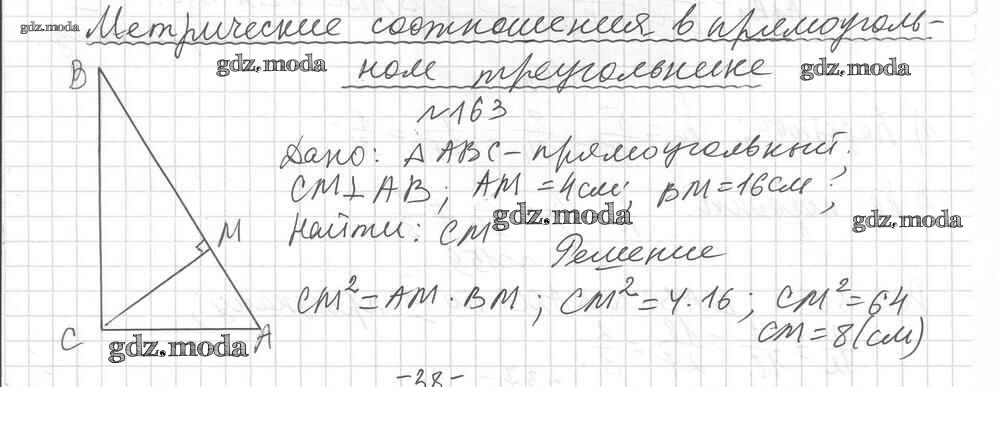 gdz.moda Метрические соотношения в прямоуголь-
gdz.moda ном треугольнике gdz.moda
B
№163
Дано: ΔABC - прямоугольный;
CM⊥AB; AM = 4см; BM = 16см;
gdz.moda gdz.moda
M Найти: CM
Решение
CM² = AM · BM; CM² = 4·16; CM² = 64
CM = 8(см)
C gdz.moda A
-38-